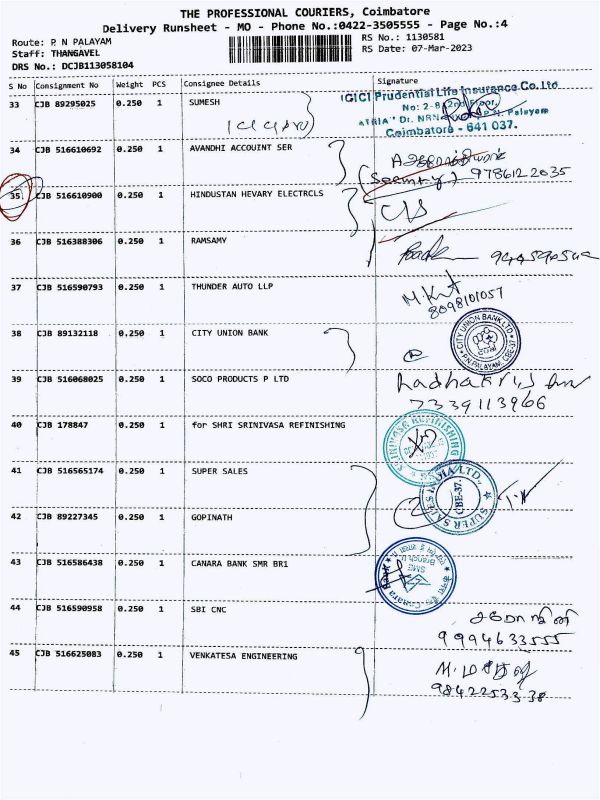 THE PROFESSIONAL COURIERS, Coimbatore
Delivery Runsheet - MO - Phone No.:0422-3505555 - Page No.:4
Route: P N PALAYAM
RS No.: 1130581
Staff: THANGAVEL
RS Date: 07-Mar-2023
DRS No.: DCJB113058104
S No Consignment No Weight PCS Consignee Details Signature
33 CJB 89295025 0.250 1 SUMESH
ICICI Prudential Life Insurance Co.Ltd
No: 2-8, 2nd Floor,
"ATRIA" Dr. NRN P.N. Palayam
Coimbatore - 641 037.
34 CJB 516610692 0.250 1 AVANDHI ACCOUINT SER
9786122035
35 CJB 516610900 0.250 1 HINDUSTAN HEVARY ELECTRCLS
36 CJB 516388306 0.250 1 RAMSAMY
37 CJB 516590793 0.250 1 THUNDER AUTO LLP
8098101057
38 CJB 89132118 0.250 1 CITY UNION BANK
CITY UNION BANK LTD
P.N.PALAYAM, CBE-37
39 CJB 516068025 0.250 1 SOCO PRODUCTS P LTD
Radhakrishnan
7339113966
40 CJB 178847 0.250 1 for SHRI SRINIVASA REFINISHING
SRINIVASA REFINISHING
41 CJB 516565174 0.250 1 SUPER SALES
SUPER SALES INDIA LTD.,
CBE-37.
42 CJB 89227345 0.250 1 GOPINATH
43 CJB 516586438 0.250 1 CANARA BANK SMR BR1
Canara Bank
SME
Branch
44 CJB 516590958 0.250 1 SBI CNC
சரோஜினி
9994633555
45 CJB 516625083 0.250 1 VENKATESA ENGINEERING
9842253338